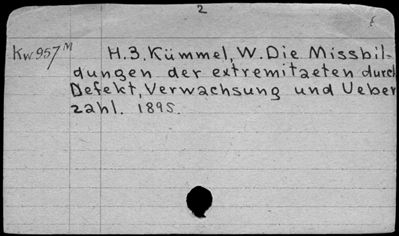 2
Kw957M H.3. Kümmel, W. Die Missbil-
dungen der extremitaeten durch
Defekt, Verwachsung und Ueber
zahl. 1895.